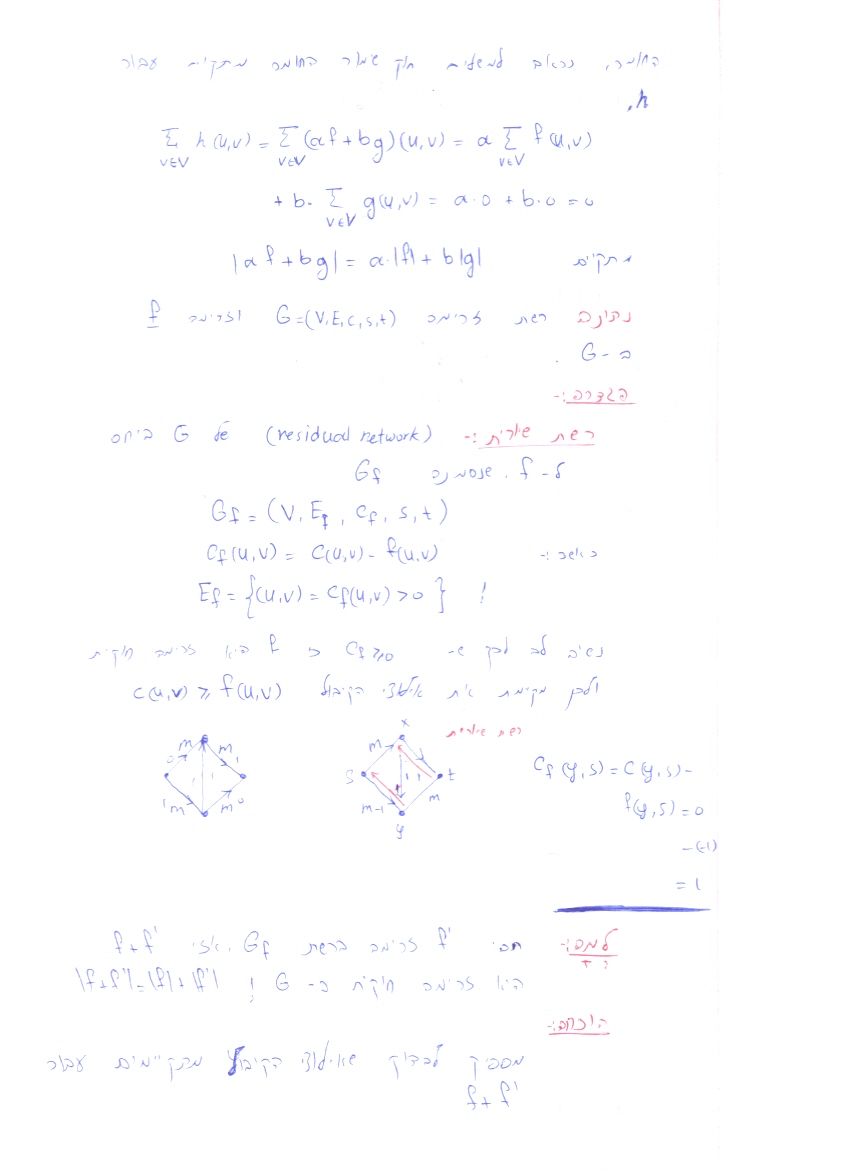 החומר, נראה למשל חוק שימור החומר מתקיים עבור
h,
Σ_{v∈V} h(u,v) = Σ_{v∈V} (af+bg)(u,v) = a Σ_{v∈V} f(u,v)
+ b· Σ_{v∈V} g(u,v) = a·0 + b·0 = 0
מתקיים |af+bg| = a·|f| + b|g|
נתונה רשת זרימה G=(V,E,c,s,t) וזרימה f
ב-G.
הגדרה:-
רשת שיורית:- (residual network) של G ביחס
ל-f, שנסמנה Gf
Gf = (V, Ef, Cf, s, t)
כאשר:- Cf(u,v) = C(u,v) - f(u,v)
Ef = {(u,v) = Cf(u,v) > 0} !
נשים לב לכך ש- Cf ≥ 0 כי f היא זרימה חוקית
ולכן מקיימת את אילוצי הקיבול c(u,v) ≥ f(u,v)
רשת שיורית
m m 0 1 1 1 m m 0
x m s t m-1 m y
Cf(y,s) = C(y,s)-
f(y,s) = 0
-(-1)
= 1
למה:- תהי f' זרימה ברשת Gf, אזי f+f'
היא זרימה חוקית ב-G ! |f+f'| = |f|+|f'|
הוכחה:-
מספיק לבדוק שאילוצי הקיבול מתקיימים עבור
f+f'